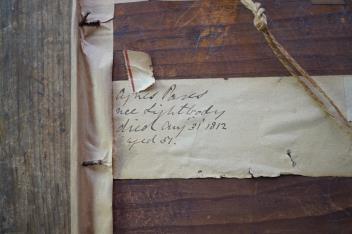 Agnes Pares
nee Lightbody
died Aug 31 1812
aged 51.